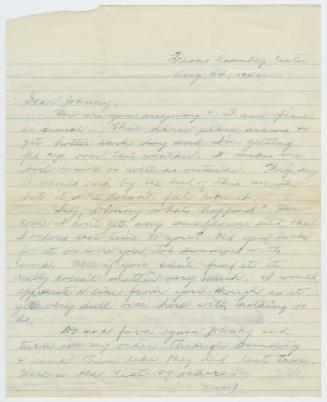 Fresno Assembly Center
Aug 24, 194
Dear Johnny,
How are you anyway? I am fine
as usual. This darn place seems to
get hotter each day and I'm getting
fed up over this weather. It makes me
inside as well as outside. They say
it should end by the end of this month
but it sure doesn't feel like it.
Say, Johnny what's happened? How
come I don't get any sunflower seed that
I ordered last time to you? Did you look
for it or were you too swamped with
work. Well if you can't find it it
really doesn't matter very much. I would
appreciate a line from you though as it
gets very dull over here with nothing to
do.
Do me a favor again Johnny and
turn in my order through
& send them like they did last time.
Here is the list of orders: